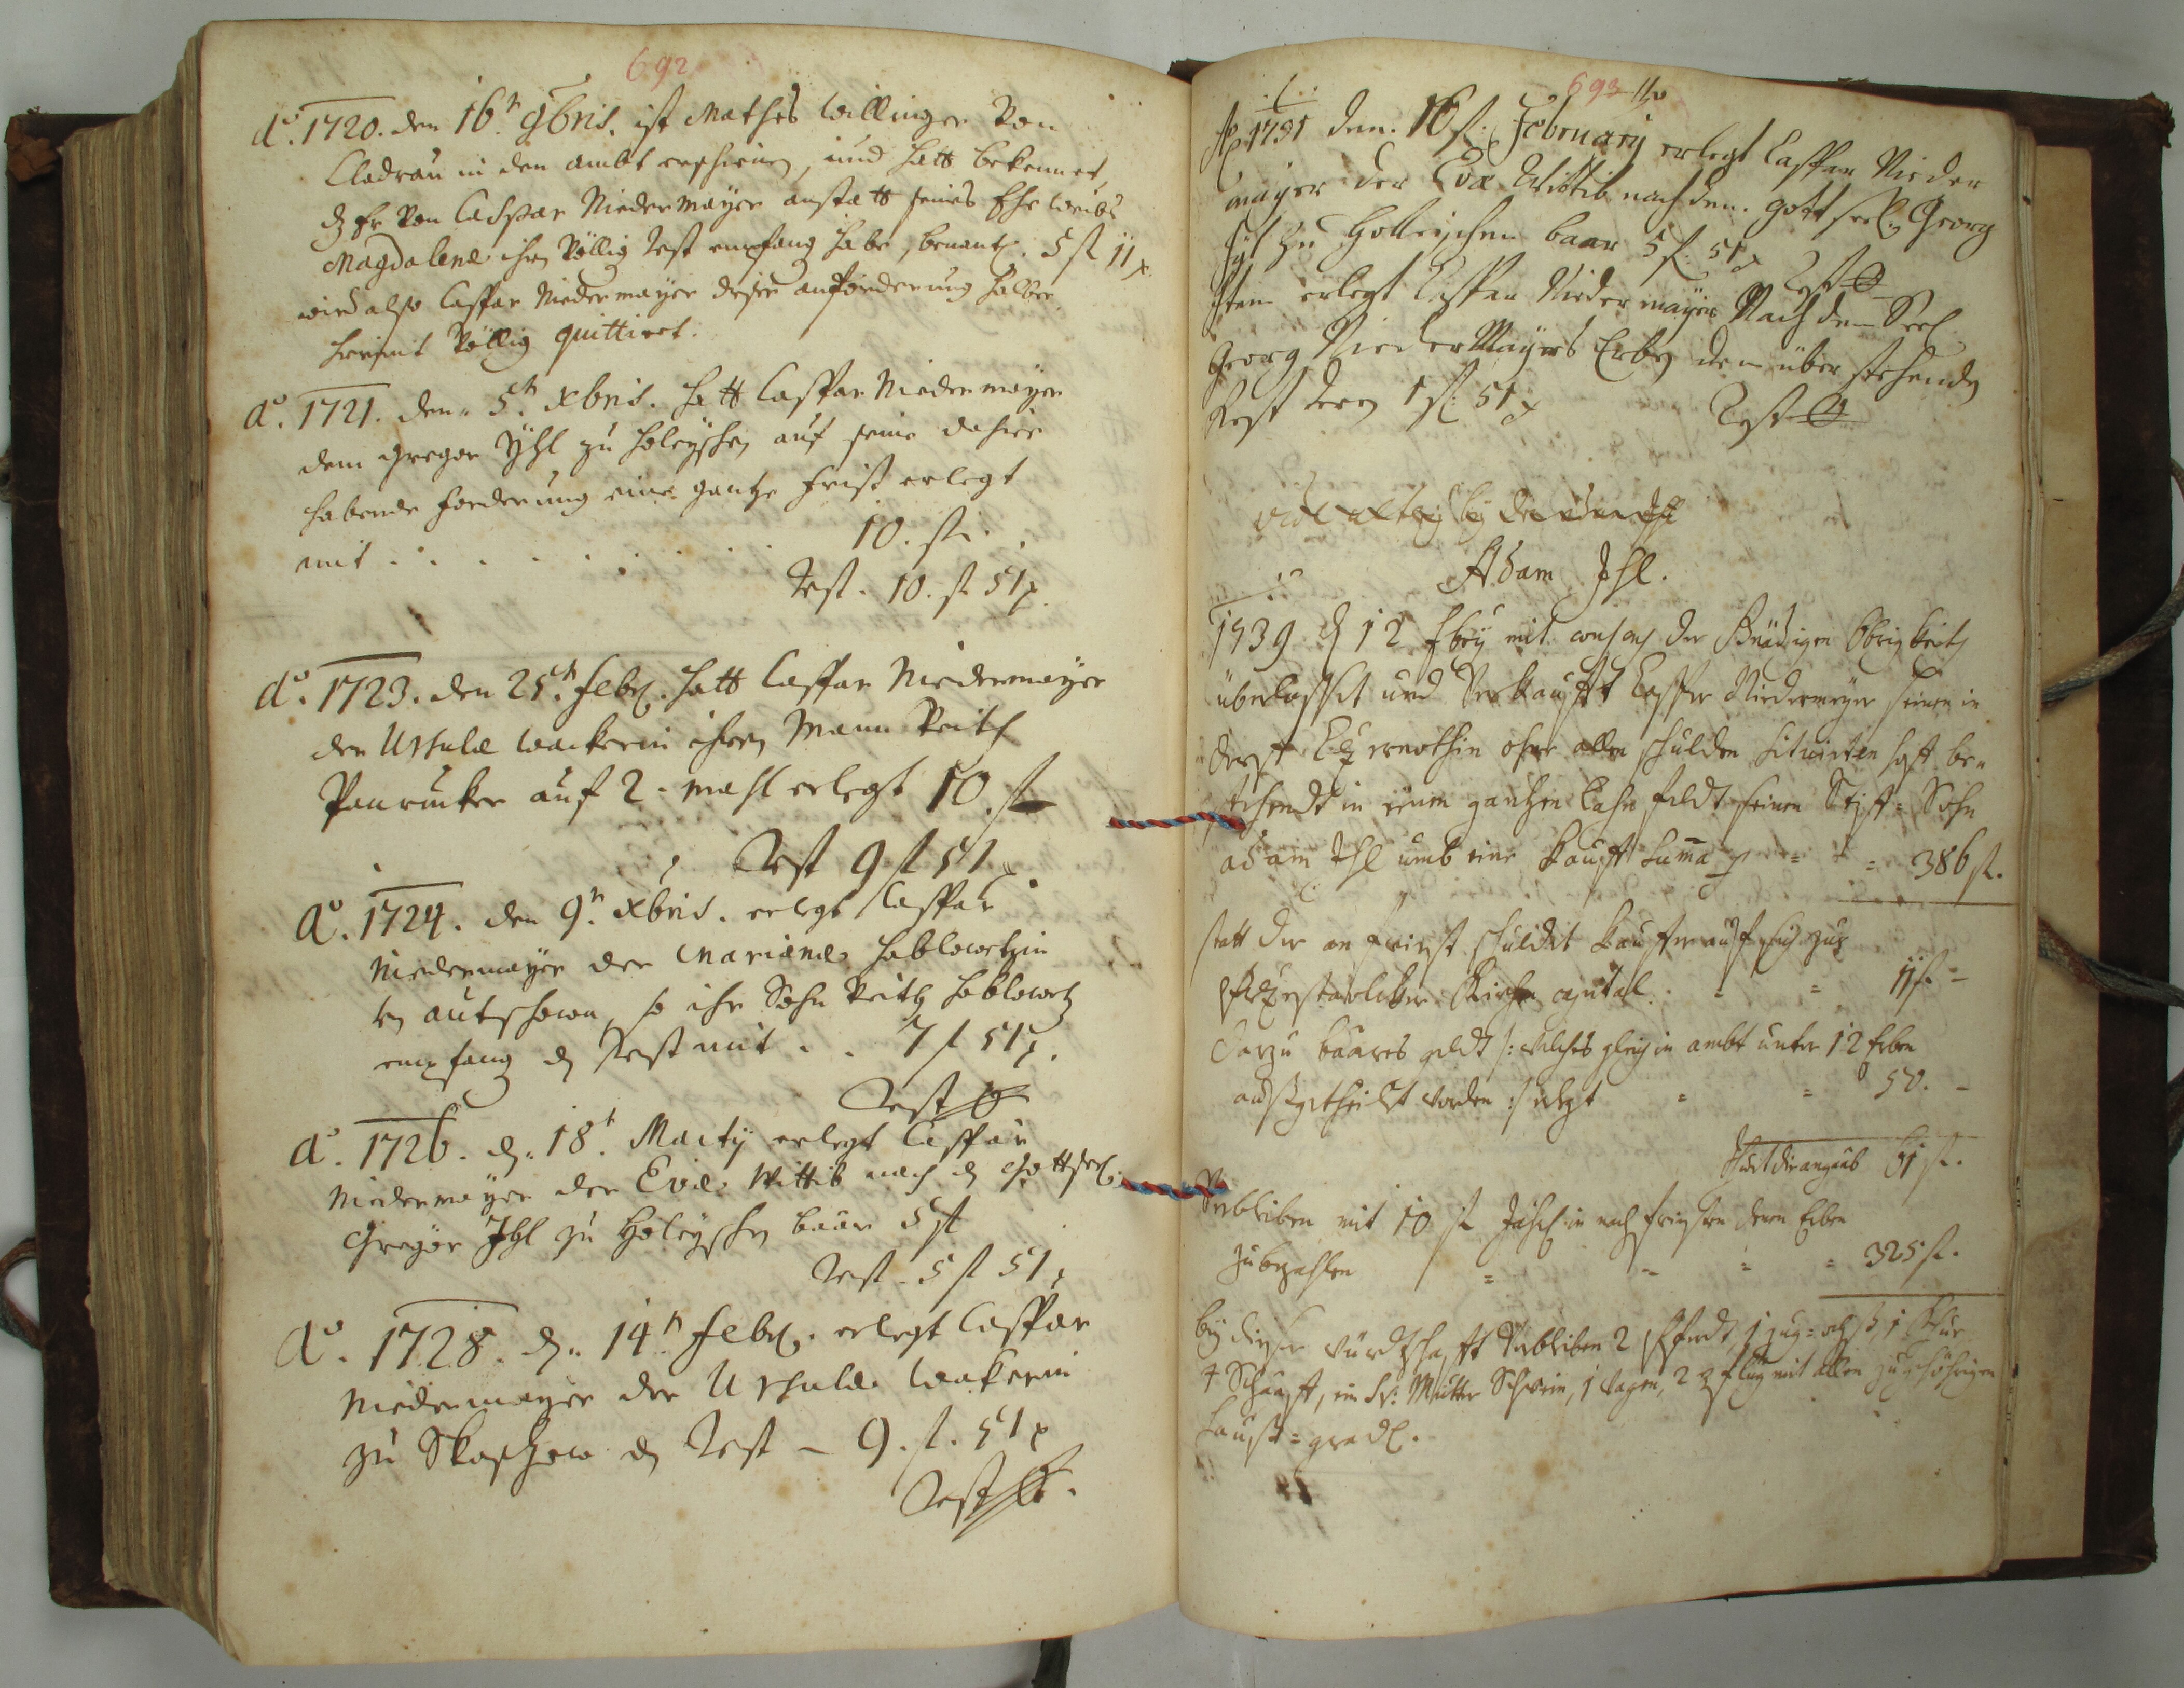 692
Aõ. 1720. den 16t. 9bris. ist Mathes Willinger von
Cladrau in den ambt erschienen, und hatt bekennet,
dz Er von Caspar Niedermayer anstatt seines Eheweibs
Magdalene ihren völlig rest empfang habe, benantl. 5 fl 11 x.
wird also Casspar Niedermayer dieser anforderung halber
hiermit völlig quittiret.
Aõ. 1721. den 5t. xbris. hatt Casspar Niedermayer
dem Gregor Ihl zu Holeyschen auf seine dahier
habende forderung eine gantze frist erlegt
mit . . . . . . . . 10. fl.
Rest. 10. fl 51 x.
Aõ. 1723. den 25t. Febr. hatt Casspar Niedermayer
der Ursula Wackerin ihren Mann Veith
auf 2 mahl erlegt 10. fl
Rest 9 fl 51 x.
Aõ. 1724. den 9t. xbris. erlegt Casspar
Niedermayer der Mariana Hablowetzin
so ihr Sohn Veith Hablowetz
empfang den Rest mit . . 7 fl 51 x.
Rest 0
Aõ. 1726. d. 18t. Marty erlegt Casspar
Niedermayer der Eva Wittib nach den Gottseel.
Gregor Ihl zu Holeyschen baar 5 fl
Rest. 5 fl 51 x
Aõ. 1728. d. 14t Febr. erlegt Casspar
Niedermayer der Ursula Wakerin
zu den Rest - 9. fl. 51 x
Rest 0.
693
Ao 1731 den 16t. February erlegt Casspar Nieder
mayer der Eva Wittib nach den Gott seel. Georg
Ihl zu Holleischen baar 5 fl: 51 x
Rest 0
Item erlegt Casspar Niedermayer Nach dem Seel.
Georg NiederMayers Erben den überstehenden
Rest deren 1 fl: 51 x Rest 0
Adam Ihl.
1739 d 12 mit consens der Gnädigen Obrigkeit
überlasset und verkaufft Casper Niedermeyer seinen in
dorff ohne allen schulden situirten hoff be-
stehendt in einem gantzen Lahn feldt seinen Stiff-Sohn
adam Ihl umb eine Kauff Summa p = = = 386 fl.
statt der an frist schuldet Kaufer auf sich zur
Kirchen capital. = = 11 fl -
darzu baares geldt /: welches gleich in ambt unter 12 Erben
außgetheillt worden :/ erlegt = = 50. -
Thuet die angaab 61 fl.
Verbleiben mit 10 fl Jährl. in nach fristen deren Erben
zubezahlen = = = = 325 fl.
bey dieser würdtschafft verbleiben 2 Pferdt, 1 zug-ochs, 1 Kue
4 Schaaff, ein Sv: Mutter Schwein, 1 wagen, 2 pflüg mit allen zugehörigen